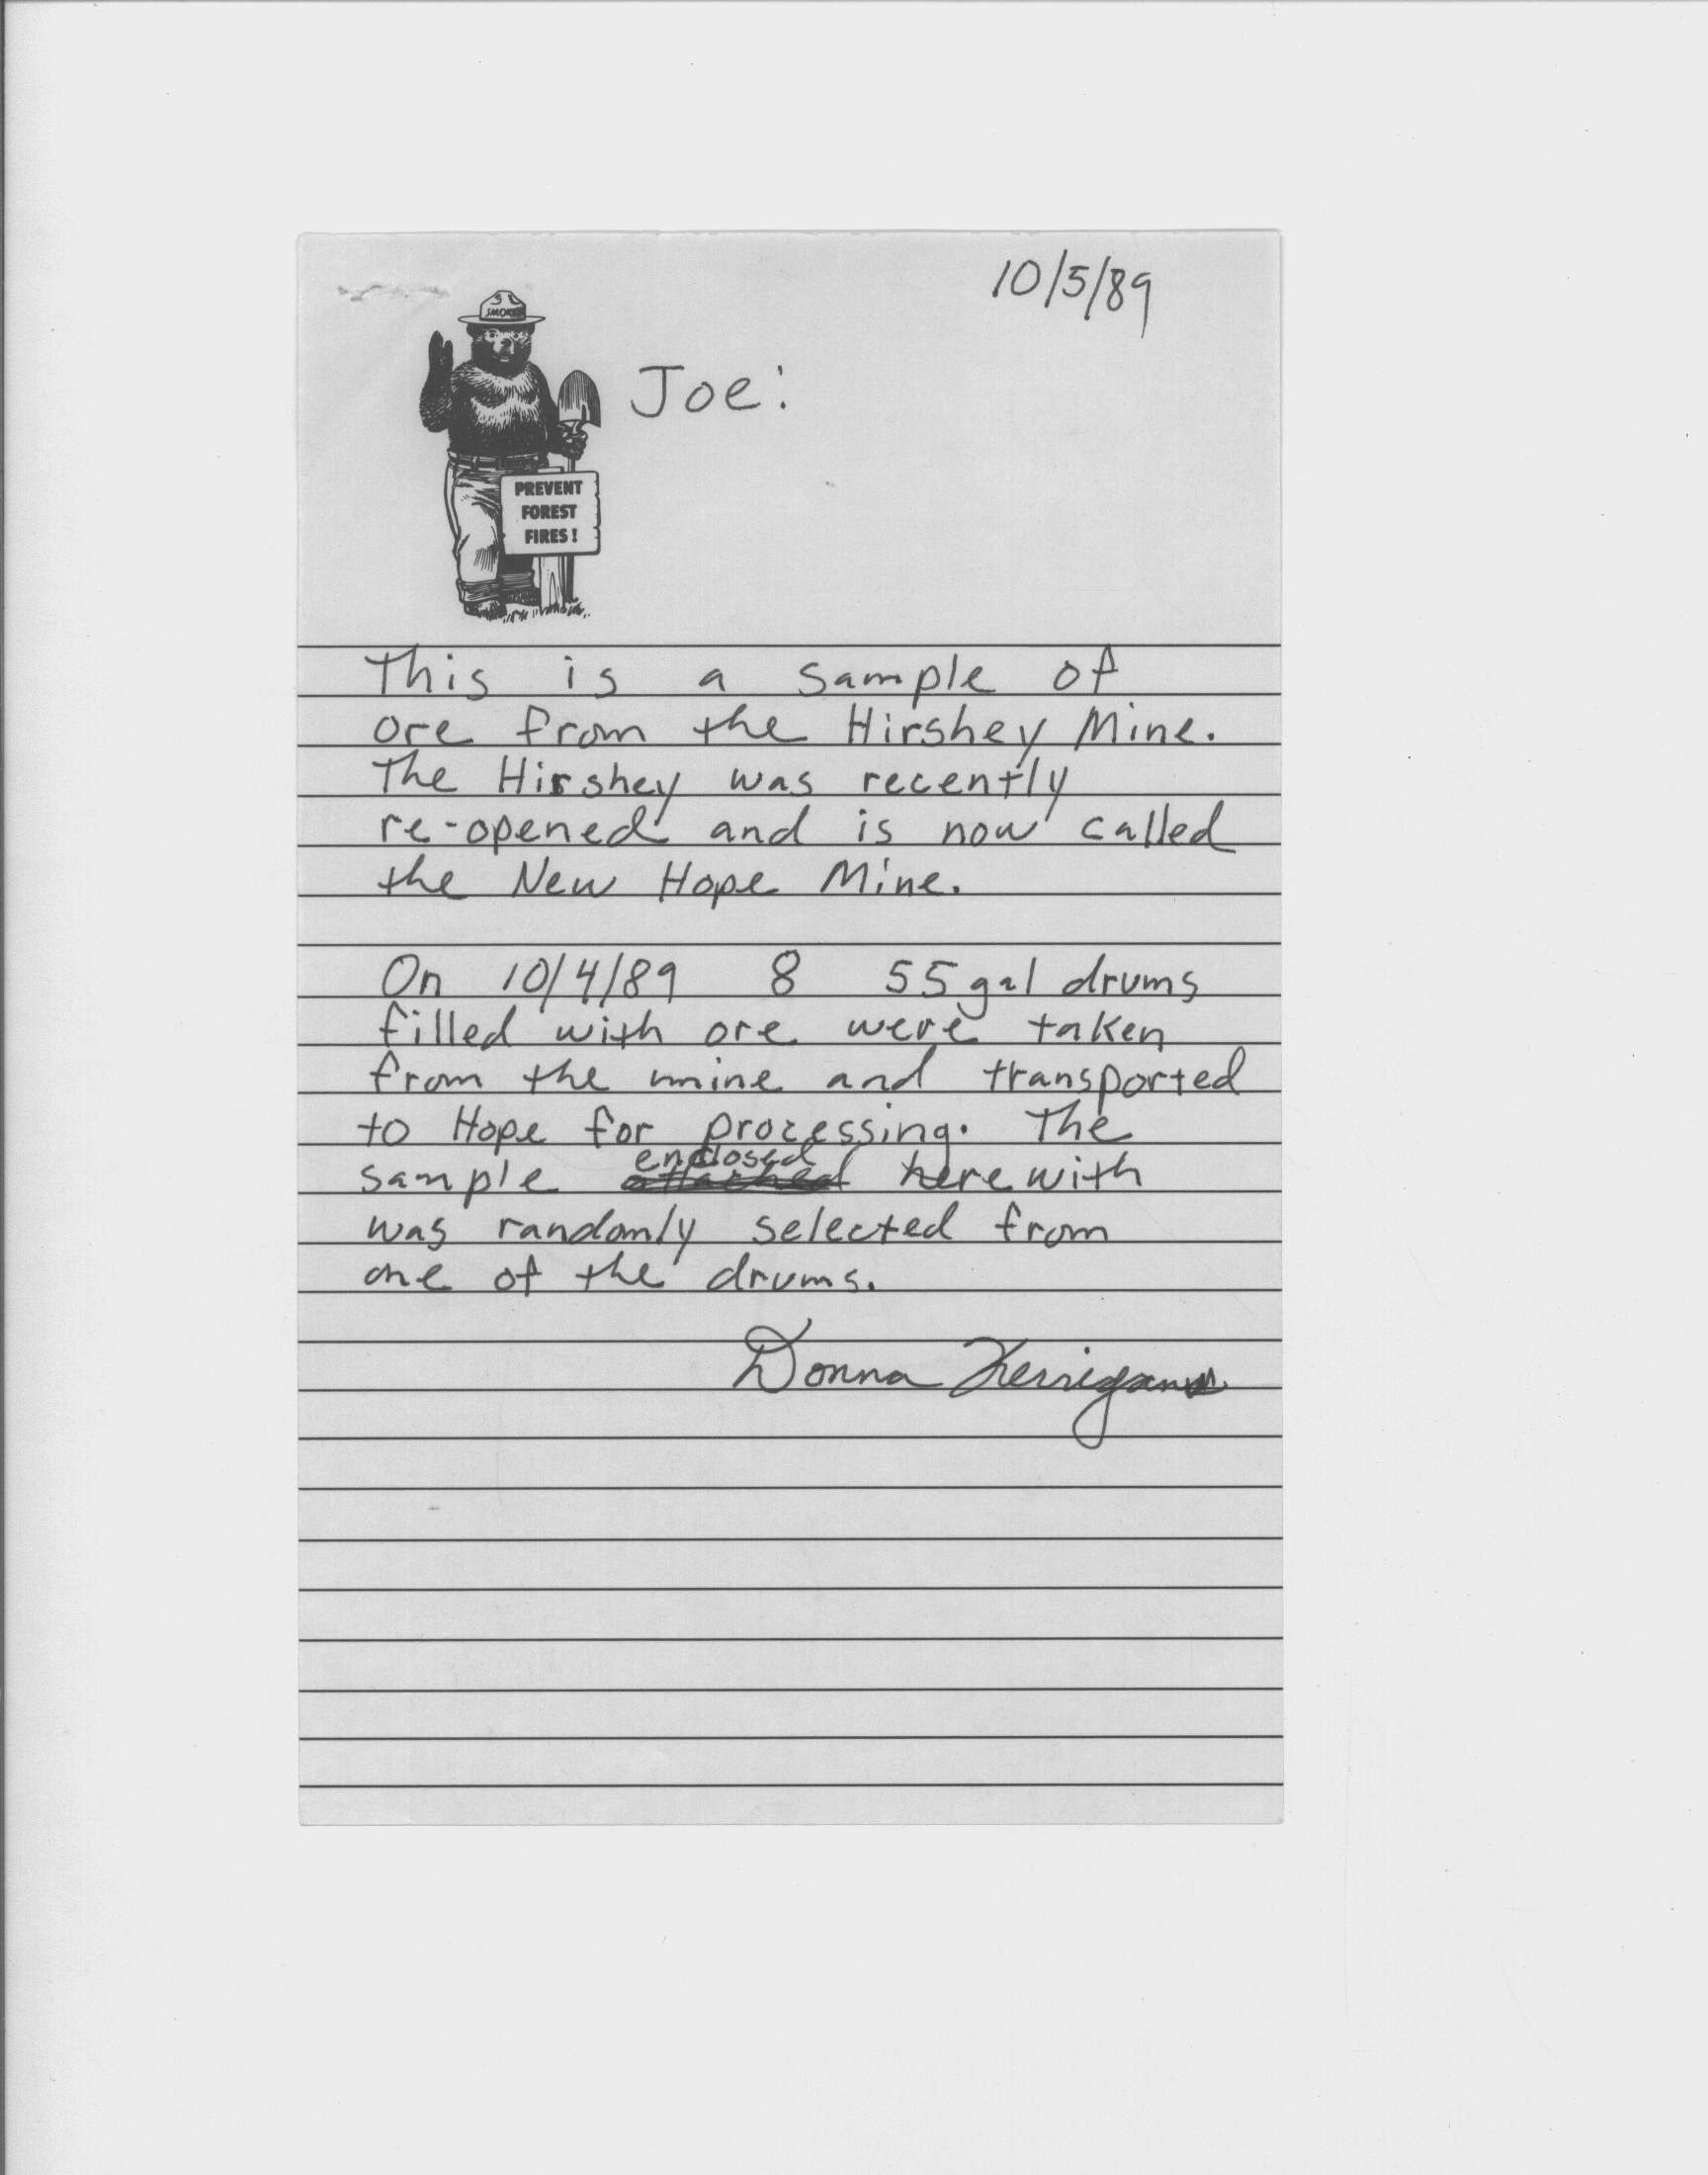 10/5/89
SMOKEY
Joe:
PREVENT
FOREST
FIRES!
This is a sample of
ore from the Hirshey Mine.
The Hirshey was recently
re-opened and is now called
the New Hope Mine.
On 10/4/89 8 55 gal drums
filled with ore were taken
from the mine and transported
to Hope for processing. The
enclosed
sample attached herewith
was randomly selected from
one of the drums.
Donna Kerrigan